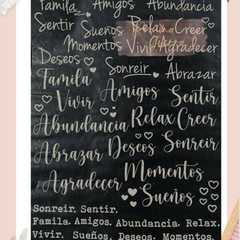 Familia Amigos Abundancia
Sentir Sueños Relax Creer
Momentos Vivir Agradecer
Deseos Sonreir Abrazar
Familia Amigos Sentir
Vivir
Abundancia Relax Creer
Abrazar Deseos Sonreir
Agradecer Momentos
Sueños
Sonreir. Sentir.
Familia. Amigos. Abundancia. Relax.
Vivir. Sueños. Deseos. Momentos.